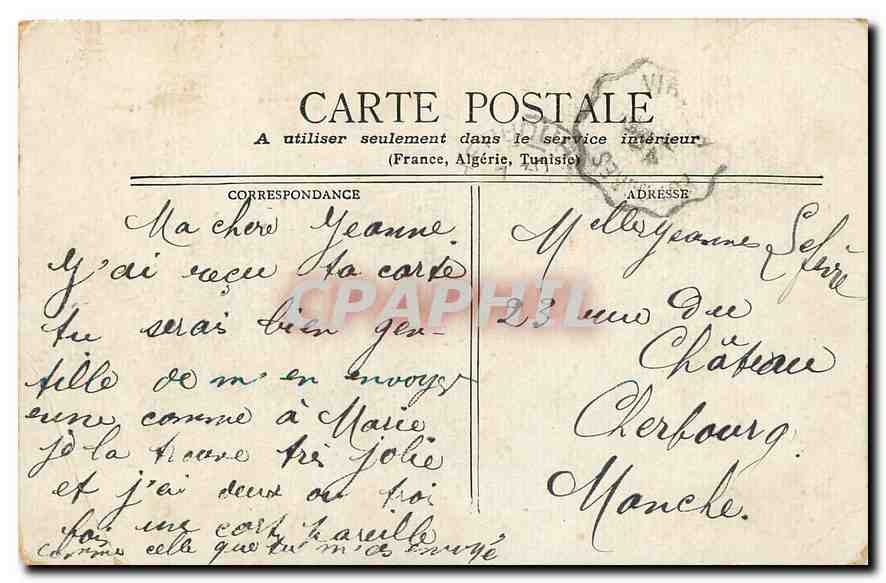 CARTE POSTALE
A utiliser seulement dans le service intérieur
(France, Algérie, Tunisie)
CORRESPONDANCE
Ma chère Jeanne
J'ai reçu ta carte
tu serais bien gen-
tille de m'en envoyer
enne comme à Marie
je la trouve très jolie
et j'ai deux ou troi
foi une cart pareille
comme celle que tu m'as envoyé
ADRESSE
Melle Jeanne Lefèvre
23 rue du
Château
Cherbourg
Manche.
CPAPHIL